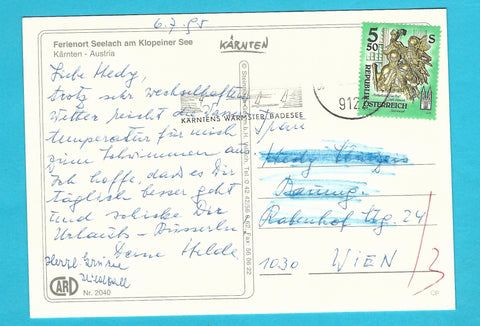 6.7.95
KÄRNTEN
Ferienort Seelach am Klopeiner See
Kärnten - Austria
Liebe Hedy,
trotz sehr wechselhaften
Wetter reicht die
temperatur für mich
zum Schwimmen aus
Ich hoffe, dass es Dir
täglich besser geht
und schicke Dir
Urlaubs-Busserln
Deine Helde
Herzl. Grüsse
CARD
Nr. 2040
KÄRNTENS WÄRMSTER BADESEE
912
5 50 S
REPUBLIK
ÖSTERREICH
Frau
Hedy
Rabenhof Stg. 24/
13
1030 WIEN
CP